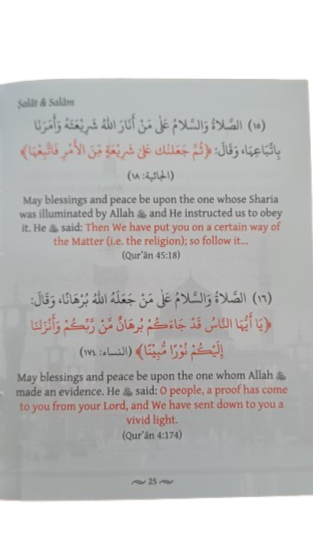 Ṣalāt & Salām
(١٥) الصَّلَاةُ وَالسَّلَامُ عَلَى مَنْ أَنَارَ اللهُ شَرِيْعَتَهُ وَأَمَرَنَا
بِاتِّبَاعِهَا، وَقَالَ: ﴿ثُمَّ جَعَلْنٰكَ عَلٰى شَرِيْعَةٍ مِّنَ الْأَمْرِ فَاتَّبِعْهَا﴾
(الجاثية: ١٨)
May blessings and peace be upon the one whose Sharia
was illuminated by Allah ﷻ and He instructed us to obey
it. He ﷻ said: Then We have put you on a certain way of
the Matter (i.e. the religion); so follow it...
(Qur'ān 45:18)
(١٦) الصَّلَاةُ وَالسَّلَامُ عَلَى مَنْ جَعَلَهُ اللهُ بُرْهَانًا، وَقَالَ:
﴿يَا أَيُّهَا النَّاسُ قَدْ جَاءَكُمْ بُرْهَانٌ مِّنْ رَّبِّكُمْ وَأَنْزَلْنَا
إِلَيْكُمْ نُوْرًا مُّبِيْنًا﴾ (النساء: ١٧٤)
May blessings and peace be upon the one whom Allah ﷻ
made an evidence. He ﷻ said: O people, a proof has come
to you from your Lord, and We have sent down to you a
vivid light.
(Qur'ān 4:174)
25